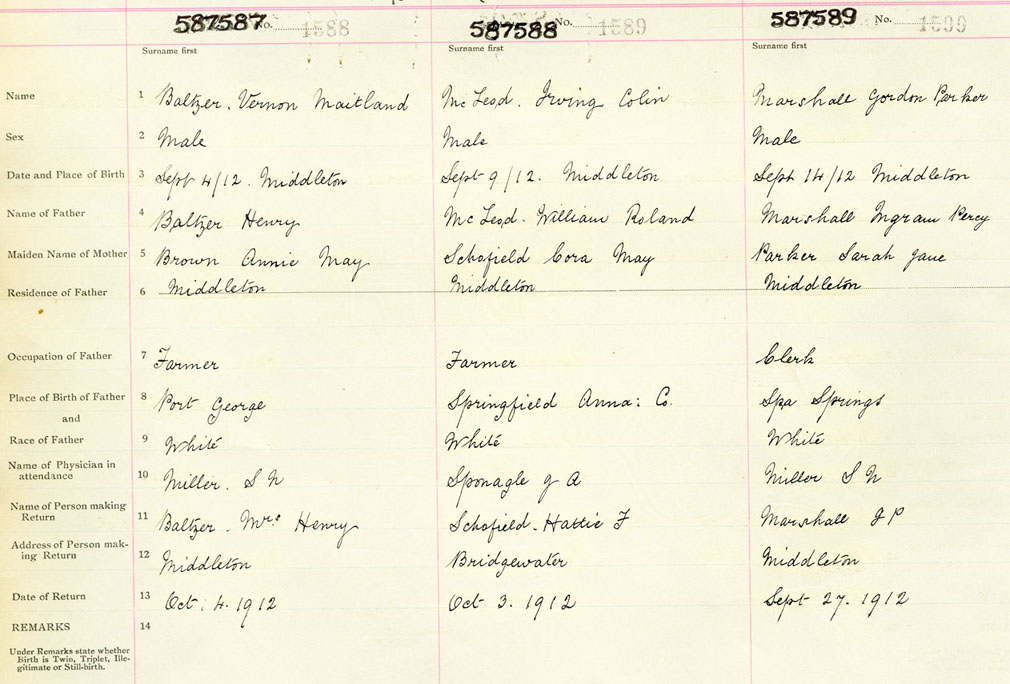 587587 No. 1588 587588 No. 1589 587589 No. 1590
Surname first Surname first Surname first
Name 1 Baltzer. Vernon Maitland McLeod. Irving Colin Marshall Gordon Parker
Sex 2 Male Male Male
Date and Place of Birth 3 Sept 4/12. Middleton Sept 9/12. Middleton Sept 14/12 Middleton
Name of Father 4 Baltzer Henry McLeod. William Roland Marshall Ingram Percy
Maiden Name of Mother 5 Brown Annie May Schofield Cora May Parker Sarah Jane
Residence of Father 6 Middleton Middleton Middleton
Occupation of Father 7 Farmer Farmer Clerk
Place of Birth of Father 8 Port George Springfield Anna: Co. Spa Springs
and
Race of Father 9 White White White
Name of Physician in
attendance 10 Miller. S N Sponagle J A Miller S N
Name of Person making
Return 11 Baltzer. Mrs Henry Schofield. Hattie F Marshall I P
Address of Person mak-
ing Return 12 Middleton Bridgewater Middleton
Date of Return 13 Oct. 4. 1912 Oct 3. 1912 Sept 27. 1912
REMARKS 14
Under Remarks state whether
Birth is Twin, Triplet, Ille-
gitimate or Still-birth.